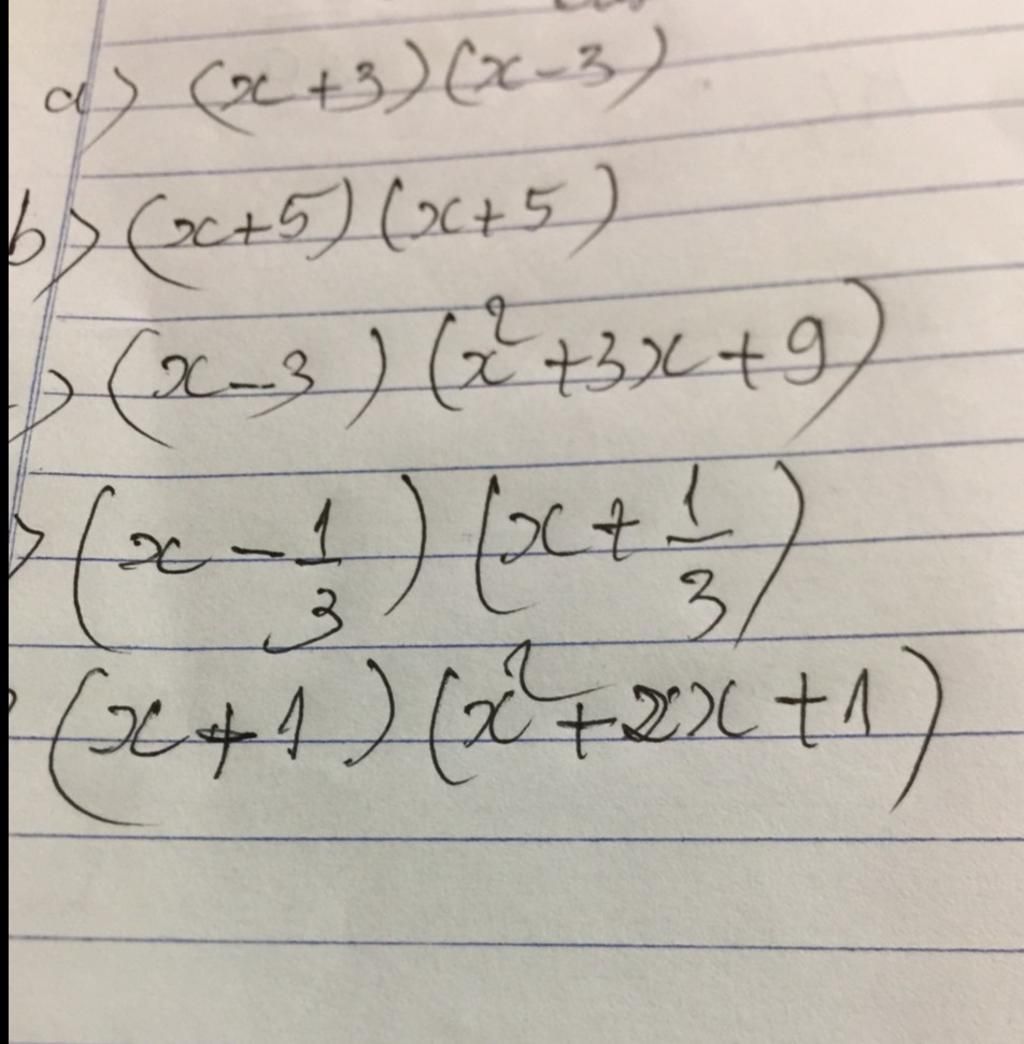 a) (x+3)(x-3)
b) (x+5)(x+5)
) (x-3)(x²+3x+9)
) (x - 1/3)(x + 1/3)
(x+1)(x²+2x+1)